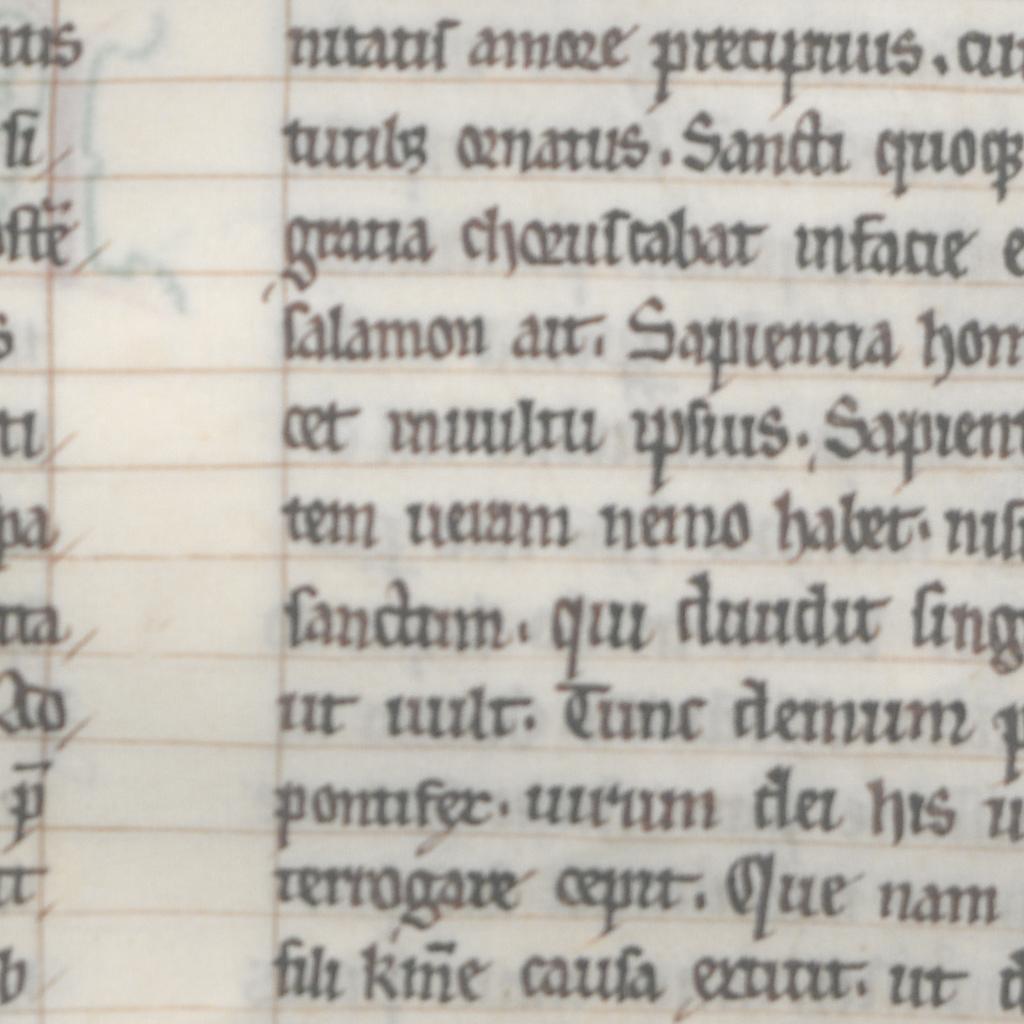 ntis
si
s
ti
pa
Ad
p̄
b
nitatis amore precipuus. cun
tutibꝫ ornatus. Sancti quoqꝫ
gratia choruscabat in facie e
salamon ait. Sapientia hom
cet in uultu ipsius. Sapient
tem ueram nemo habet. nisi
sanctum. qui diuidit sing
ut uult. Tunc demum p
pontifex. uirum dei his u
terrogare cepit. Que nam
fili kīne causa extitit. ut d